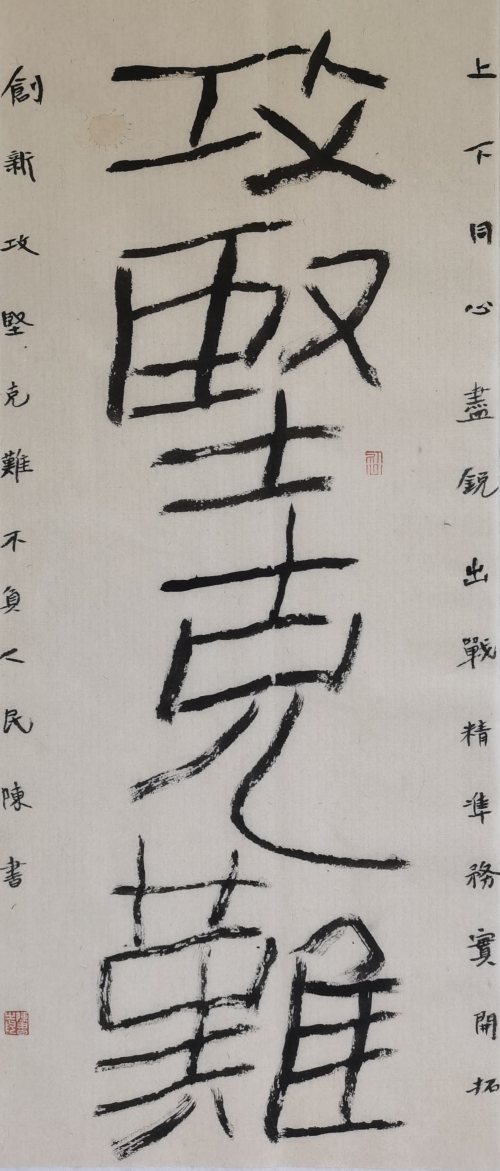 上下同心盡鋭出戰精準務實開拓
攻堅克難
創新攻堅克難不負人民陳書